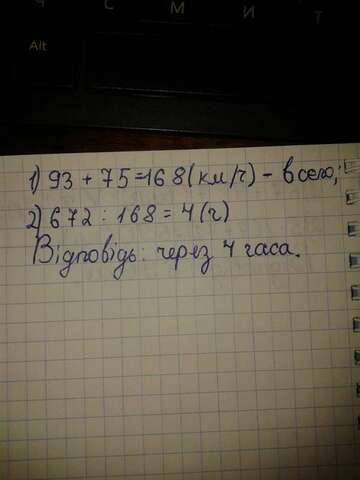 Ч С М И Т
Alt
1) 93 + 75 = 168 (км/ч) - всего;
2) 672 : 168 = 4 (г)
Відповідь: через 4 часа.